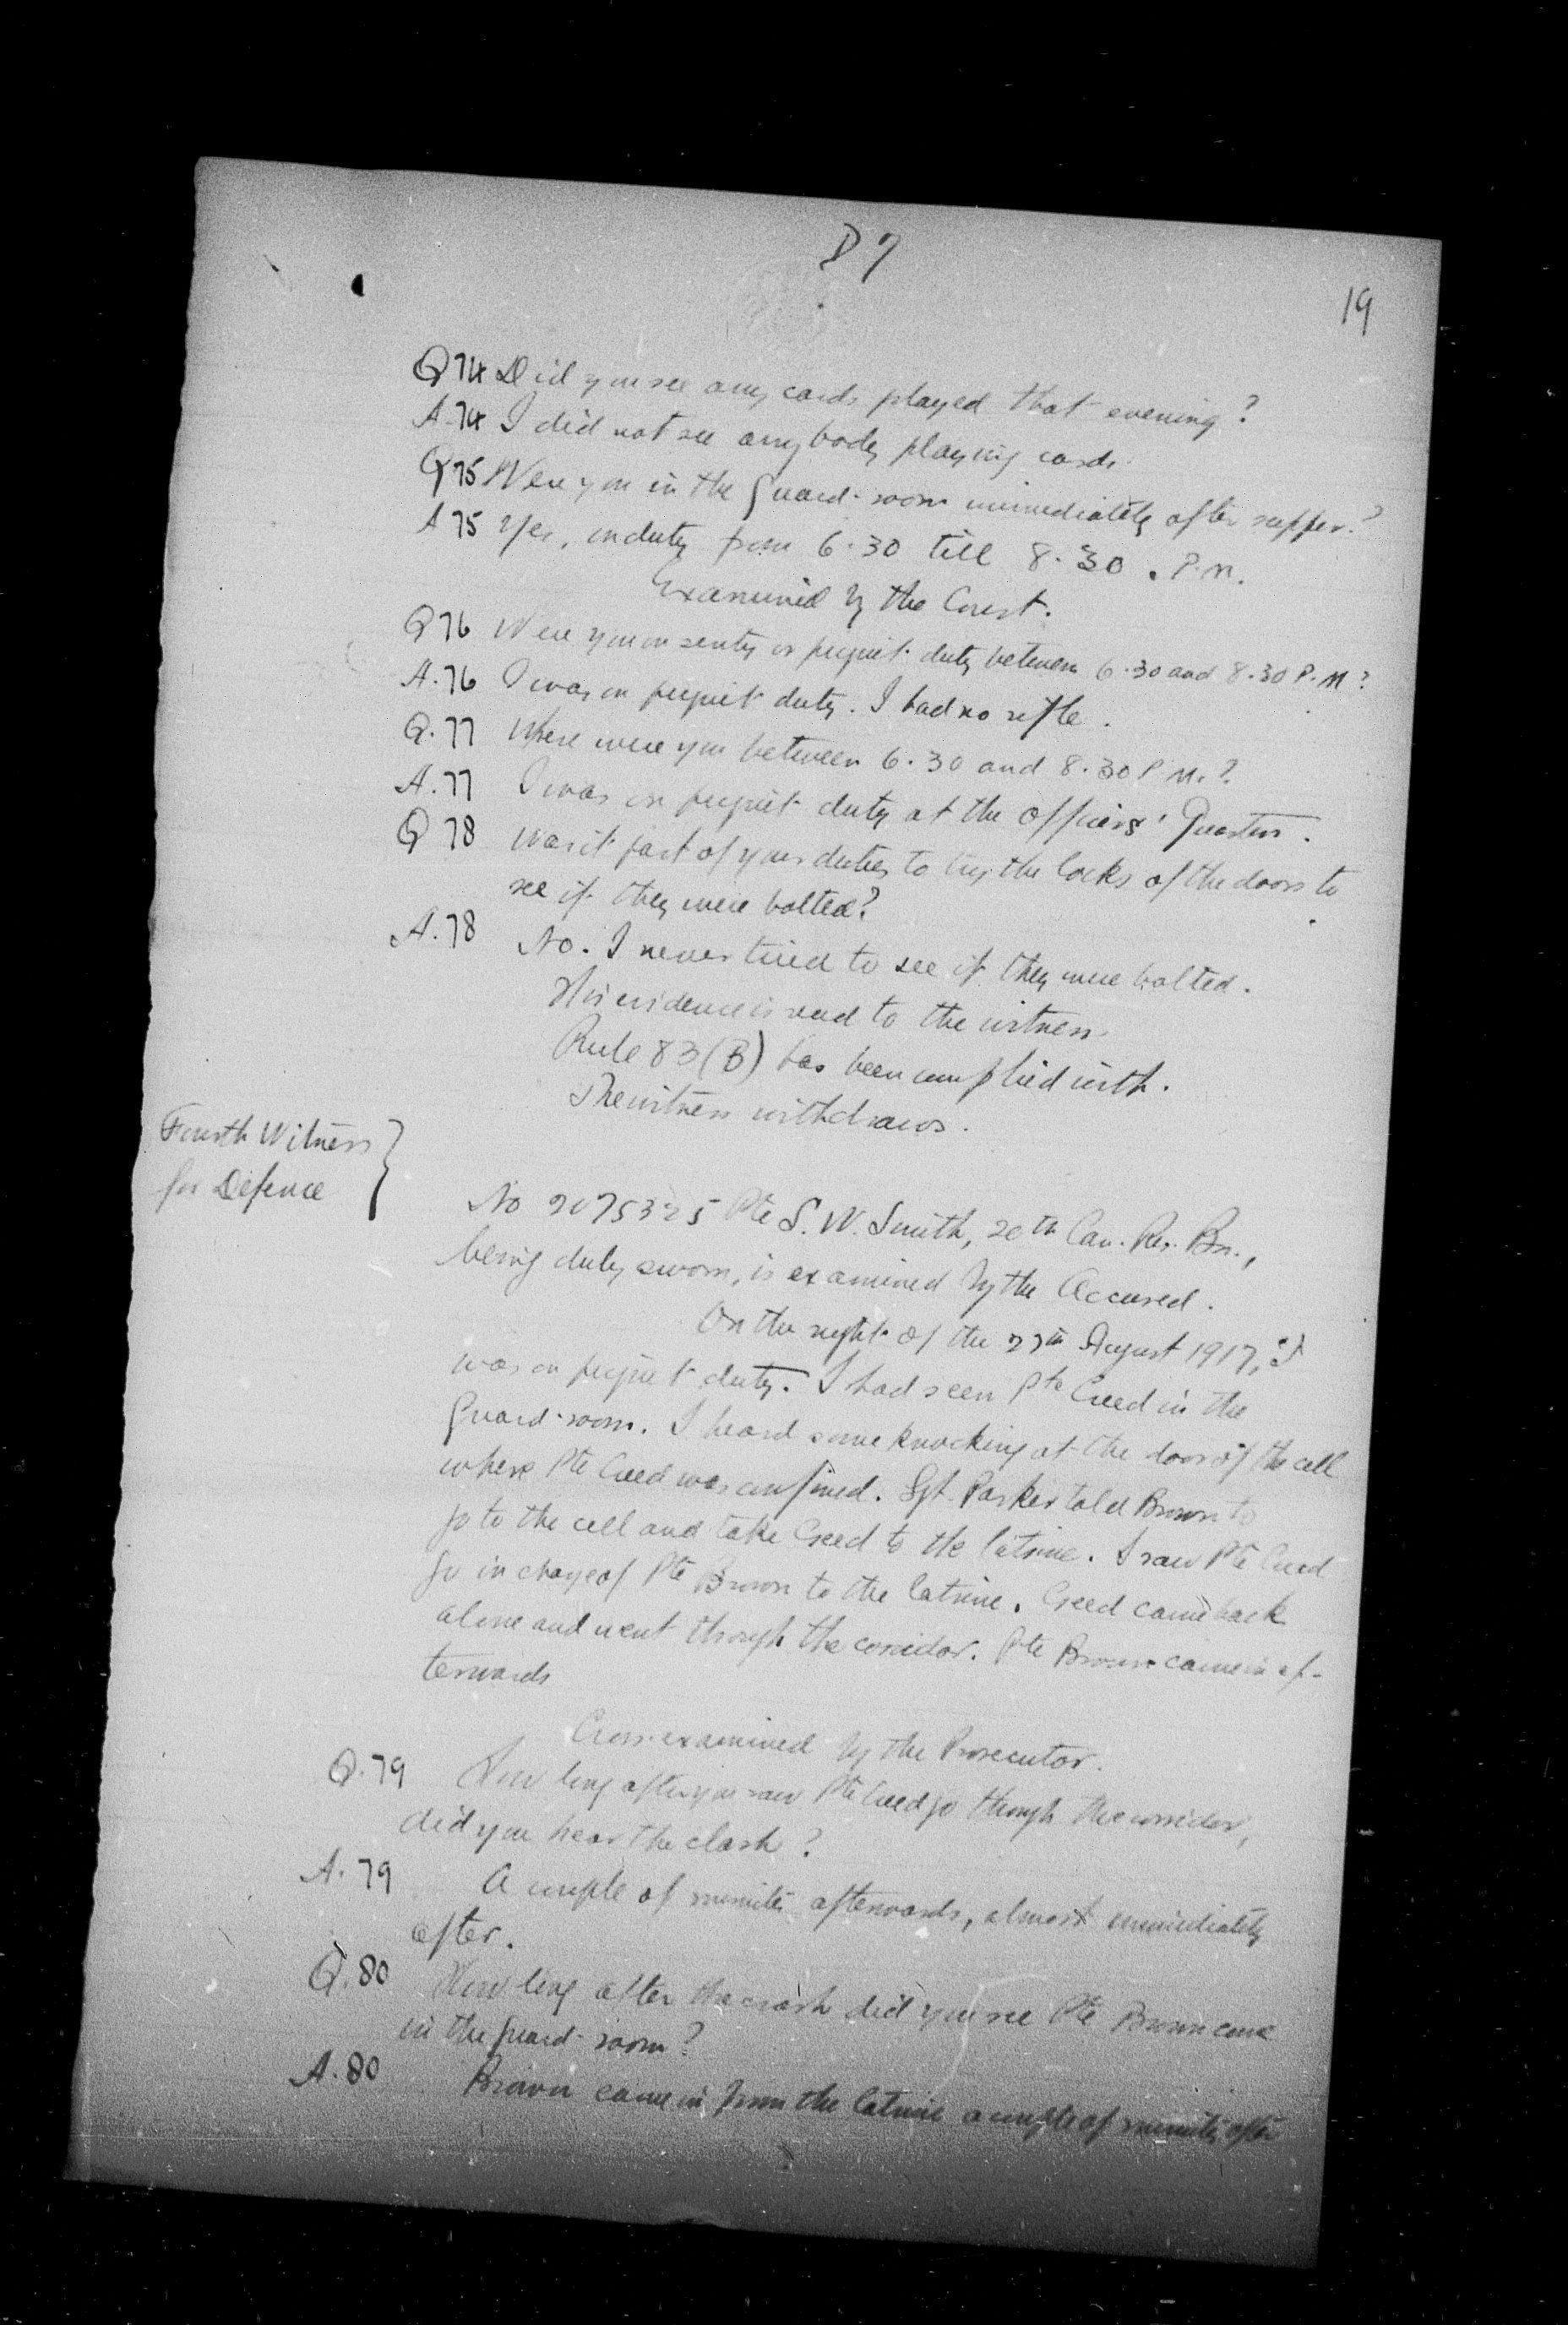 D 7
19
Q 74 Did you see any cards played that evening?
A. 74 I did not see anybody playing cards.
Q 75 Were you in the Guard-room immediately after supper?
A 75 Yes, on duty from 6.30 till 8.30. P.M.
Examined by the Court.
Q 76 Were you on sentry or picquet duty between 6.30 and 8.30 P.M?
A. 76 I was on picquet duty. I had no rifle.
Q. 77 Where were you between 6.30 and 8.30 P.M.?
A. 77 I was on picquet duty at the officers' Quarters.
Q 78 Was it part of your duties to try the locks of the doors to
see if they were bolted?
A. 78 No. I never tried to see if they were bolted.
His evidence is read to the witness.
Rule 83 (B) has been complied with.
The witness withdraws.
Fourth Witness
for Defence
No 2075325 Pte S. W. Smith, 20th Can. Res. Bn.,
being duly sworn, is examined by the Accused.
On the night of the August 1917, I
was on picquet duty. I had seen Pte Creed in the
Guard-room. I heard some knocking at the door of the cell
where Pte Creed was confined. Sgt. Parker told Brown to
go to the cell and take Creed to the latrine. I saw Pte Creed
go in charge of Pte Brown to the latrine. Creed came back
alone and went through the corridor. Pte Brown came in af-
terwards
Cross-examined by the Prosecutor.
Q. 79 How long after you saw Pte Creed go through the corridor,
did you hear the clash?
A. 79 A couple of minutes afterwards, almost immediately
after.
Q. 80 How long after the crash did you see Pte Brown come
in the guard-room?
A. 80 Brown came in from the latrine a couple of minutes after